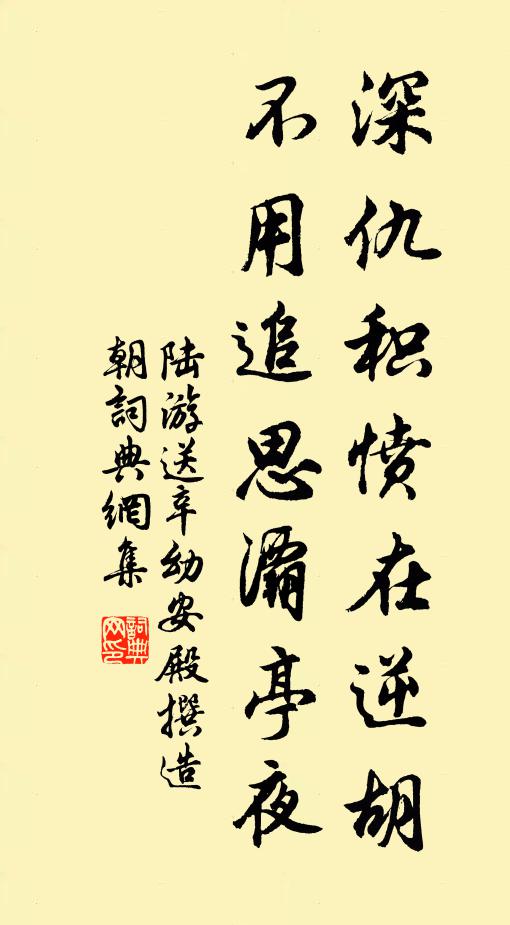 深仇积愤在逆胡
不用追思灞亭夜
陆游送辛幼安殿撰造
朝詞典網集
詞典网印